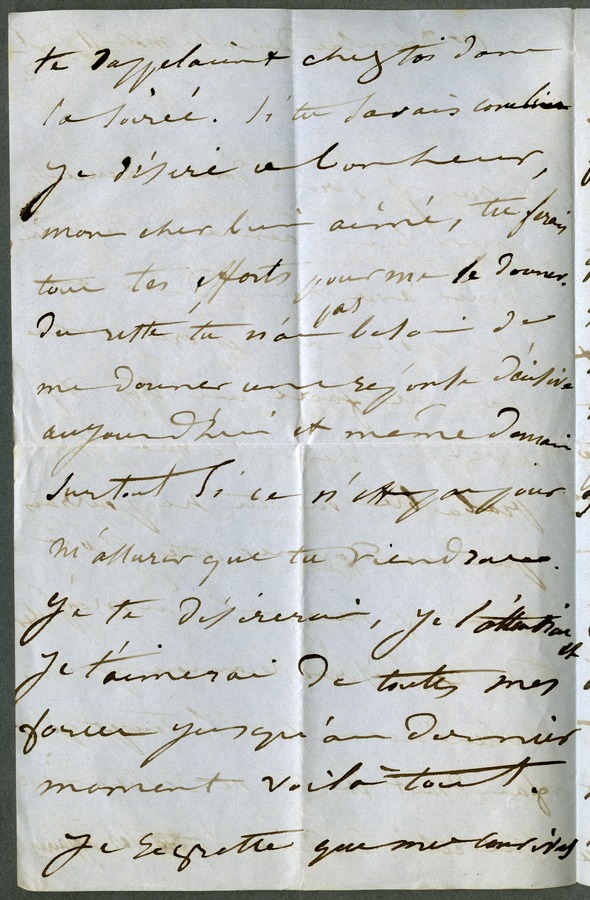 te rappelaient chez toi dans
la soirée. Si tu savais combien
je désire ce bonheur,
mon cher bien aimé, tu ferais
tous tes efforts pour me le donner.
Du reste tu n'as pas besoin de
me donner une réponse décisive
aujourd'hui et même demain
surtout si ce n'est pas pour
m'assurer que tu viendras.
Je te désirerai, je t'attendrai et
je t'aimerai de toutes mes
forces jusqu'au dernier
moment voilà tout.
Je regrette que mes convives